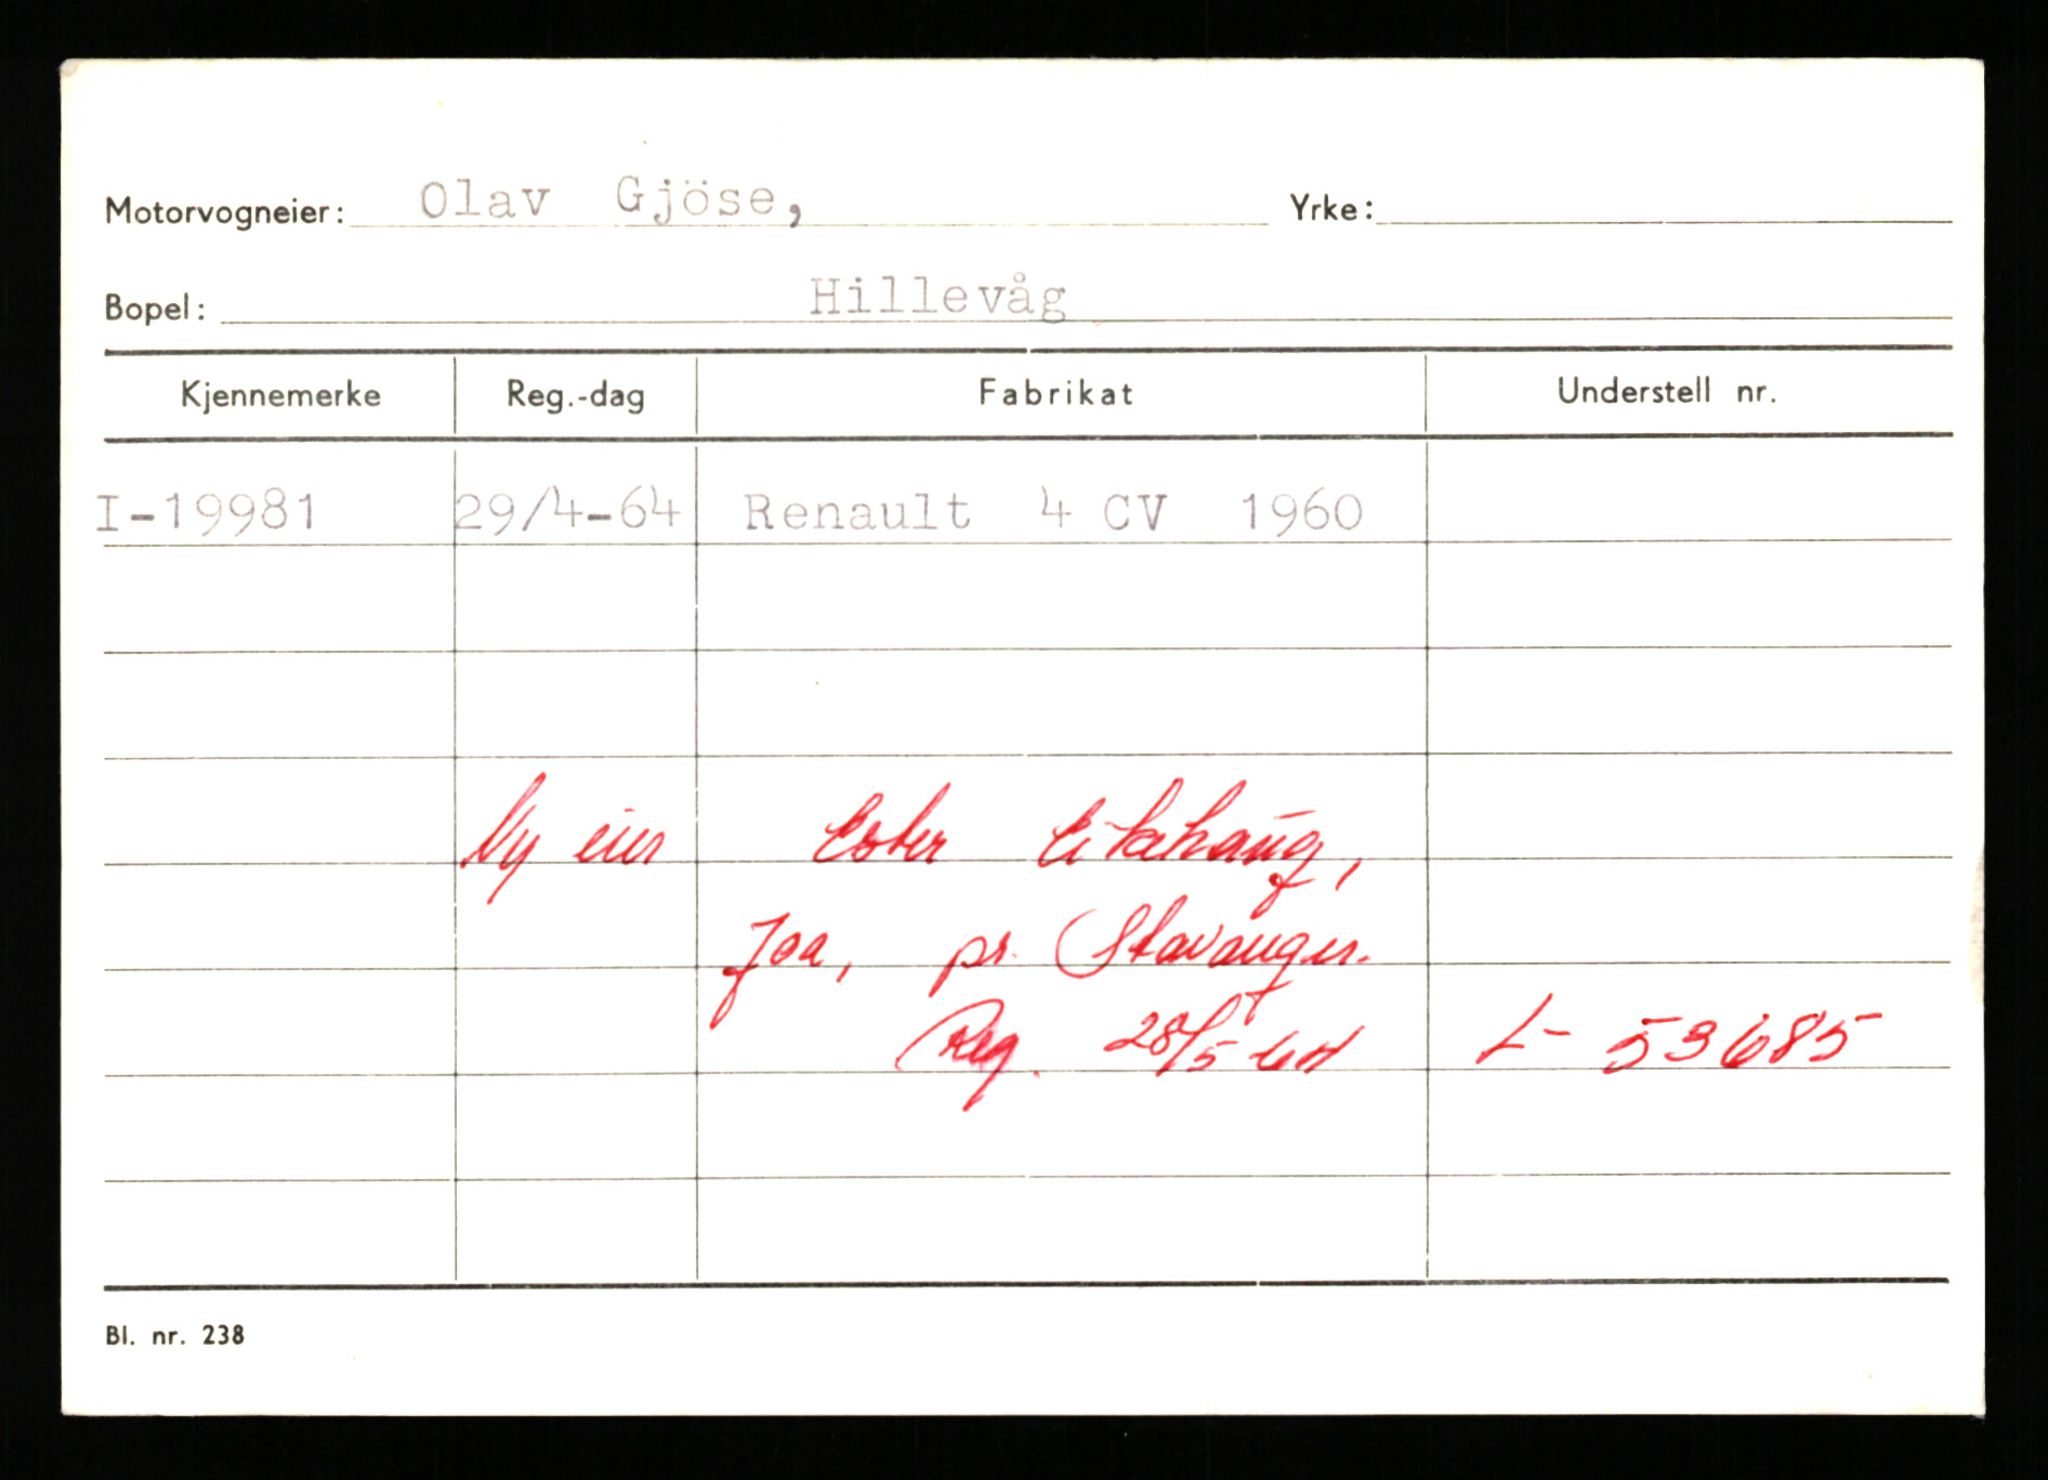 Motorvogneier: Olav Gjöse, Yrke:
Bopel: Hillevåg
Kjennemerke Reg.-dag Fabrikat Understell nr.
I-19981 29/4-64 Renault 4 CV 1960
Ny eier Ester Eikehaug,
Joa, pr. Stavanger.
Reg. 28/5 64 L- 53685
Bl. nr. 238